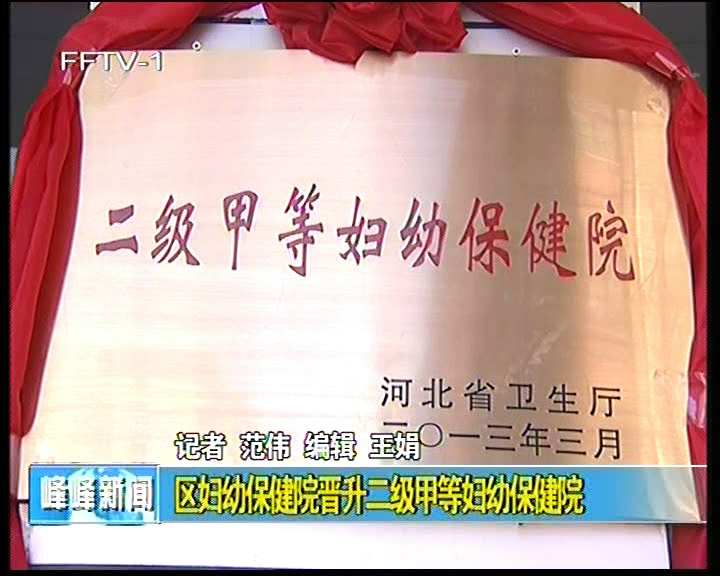 FFTV-1
二级甲等妇幼保健院
河北省卫生厅
二〇一三年三月
记者 范伟 编辑 王娟
峰峰新闻
区妇幼保健院晋升二级甲等妇幼保健院